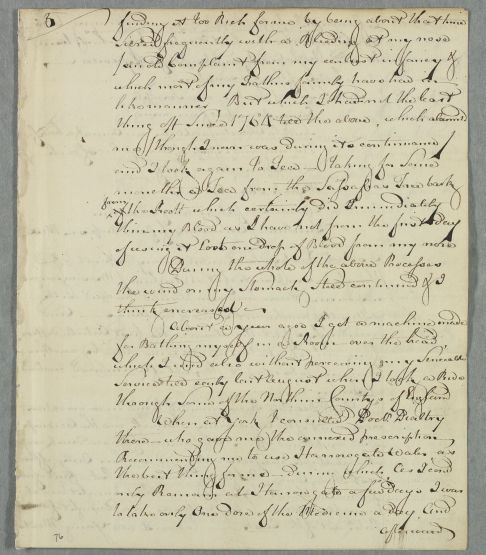 8
finding it too Rich for me by being about that time
seized frequently with a Bleeding at my nose
(an old Complaint from my earliest infancy &
which most of my Fathers family have had in
like manner. But which I had not the least
thing of since 1764 till the above, which alarmed
me, though I never was during its continuance)
and I took again to Tea — Taking for some
months a Tea from the Sassafras Tree bark
from the Root which certainly did immediately
thin my Blood as I have not from the first day
of using it lost one Drop of Blood from my nose
During the whole of the above Processes
the wind on my Stomach still continued & I
think encreased
About a year ago I got a machine made
for Bathing myself in a Room over the head
which I used also without perceiving any Sensible
Service till early last August when I took a Ride
through some of the Northern Countys of England
When at York I consulted Doctr Dealtry
there — who gave me the annexed prescription
Recommending me to use Harrowgate Water as
the best thing for me — during which (as I could
only Remain at Harrowgate a few days) I was
to take only One dose of the Medicine a day, (and
afterward
76